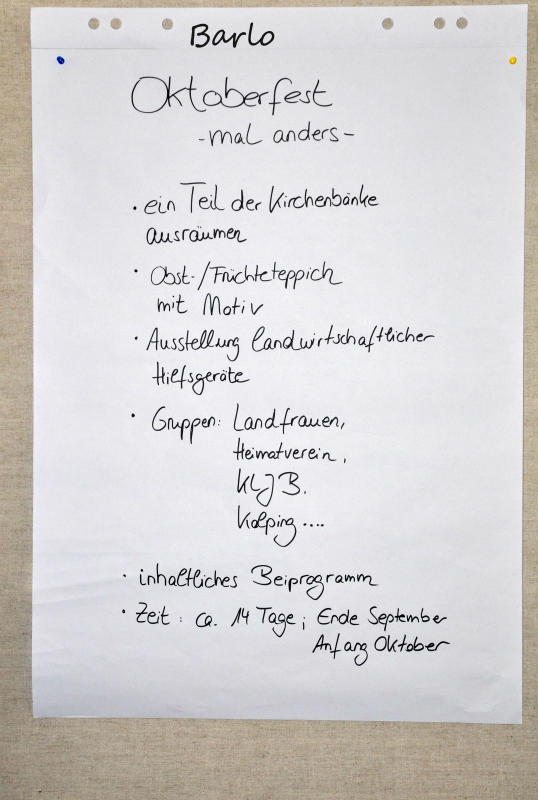 Barlo
Oktoberfest
- mal anders -
· ein Teil der Kirchenbänke
ausräumen
· Obst-/Früchteteppich
mit Motiv
· Ausstellung landwirtschaftlicher
Hilfsgeräte
· Gruppen: Landfrauen,
Heimatverein,
KLJB.
Kolping ....
· inhaltliches Beiprogramm
· Zeit: ca. 14 Tage; Ende September
Anfang Oktober